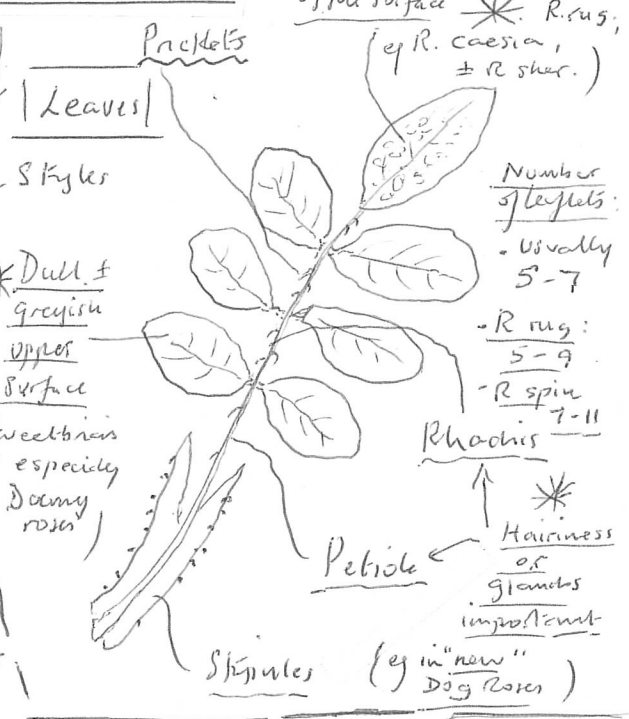 surface
R. rug,
Prickles
(eg R. caesia,
± R sher.)
Leaves
Styles
Number
of leaflets:
- usually
5-7
- R rug:
5-9
- R spin
7-11
Dull ±
greyish
upper
surface
sweetbriars
especially
Downy
roses)
Rhachis
Hairiness
or
glands
important
Petiole
Stipules
(eg in "new"
Dog Roses)